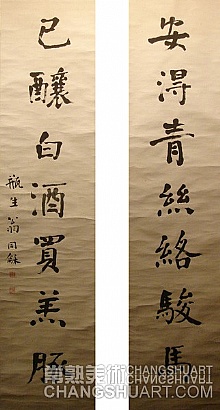 安得青絲絡駿馬
已釀白酒買羔豚
瓶生翁同龢
常熟美術 CHANGSHUART
CHANGSHUART.COM